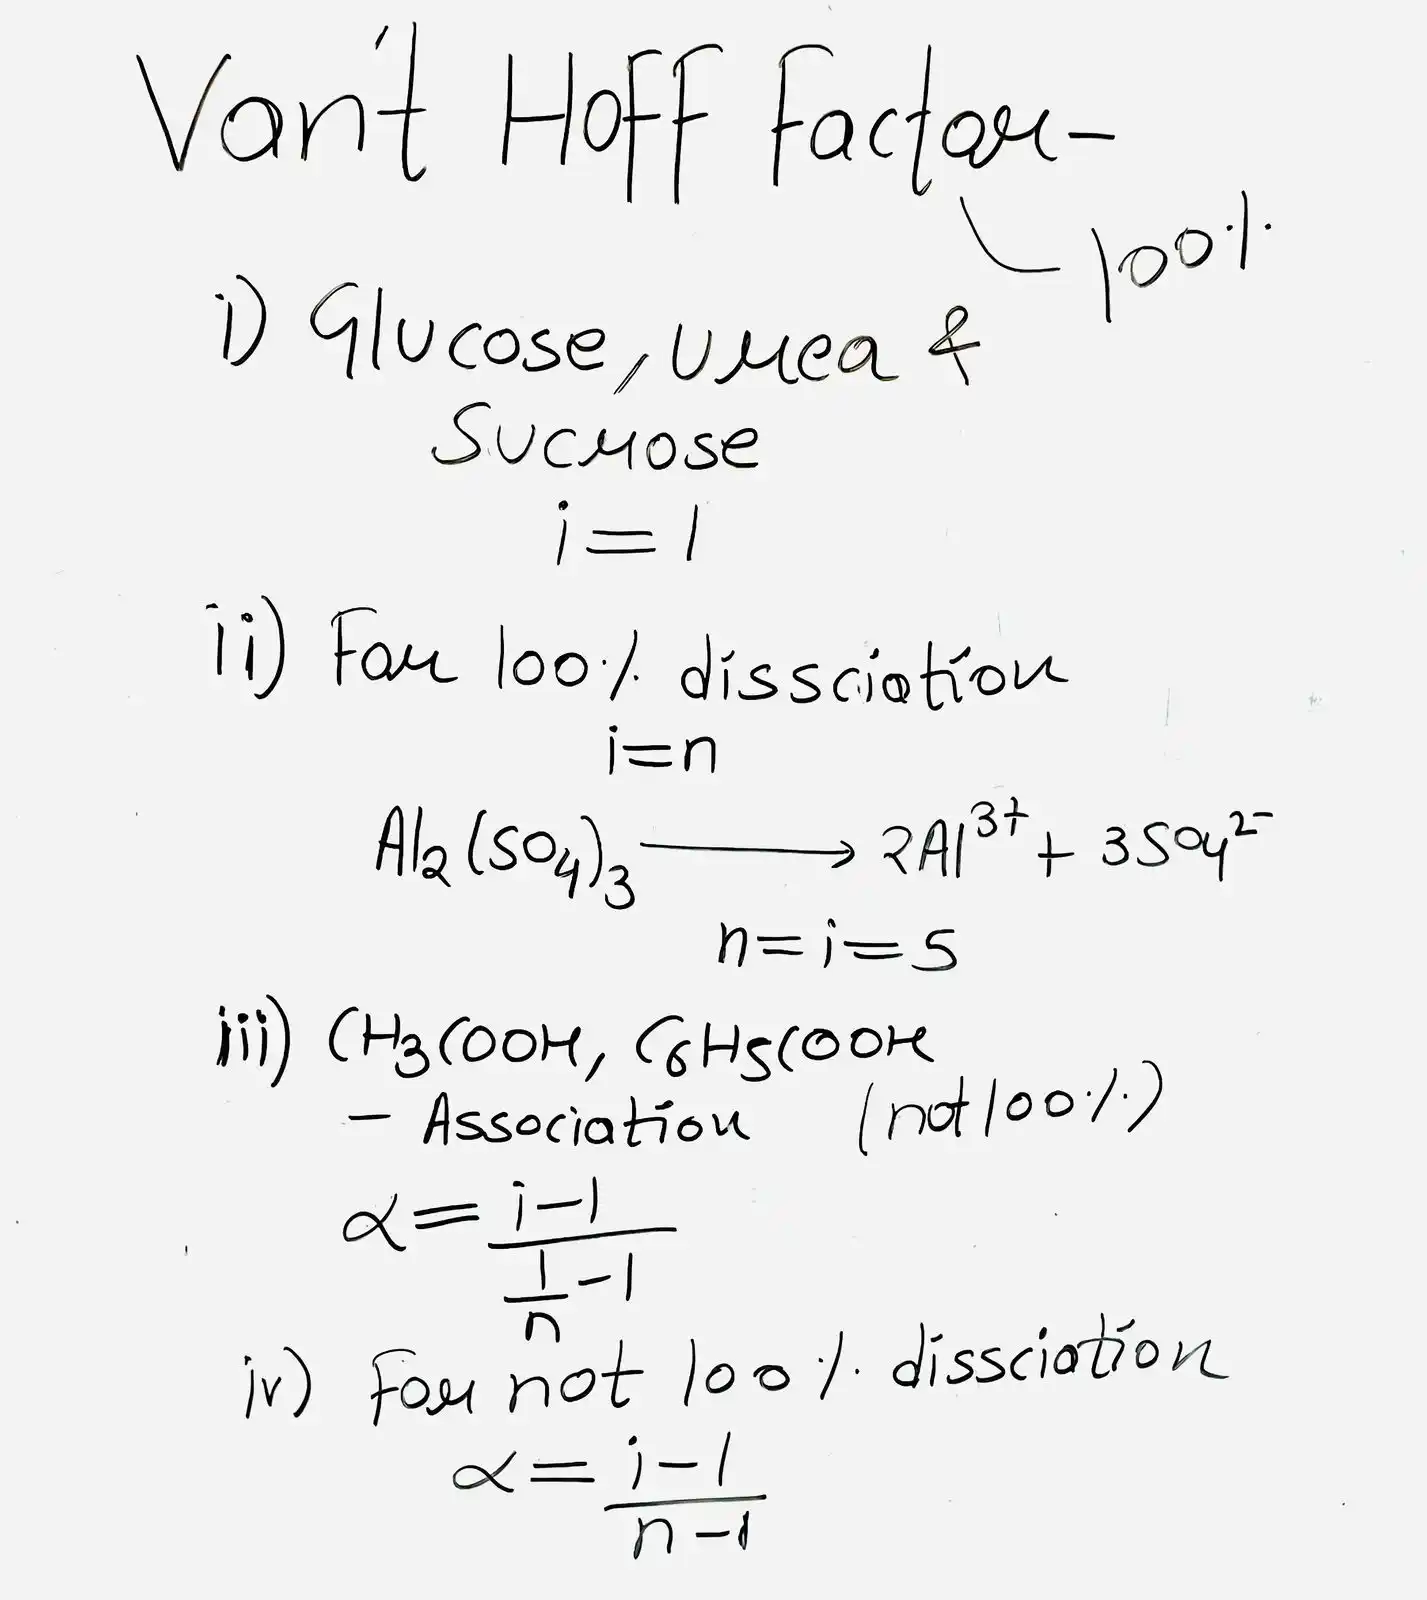 Van't Hoff Factor-
100%
i) Glucose, Urea &
Sucrose
i=1
ii) For 100% dissciation
i=n
Al2(SO4)3 → 2Al³⁺ + 3SO4²⁻
n=i=5
iii) CH3COOH, C6H5COOH
- Association (not 100%)
α = i-1
1/n - 1
iv) For not 100% dissciation
α = i-1
n-1